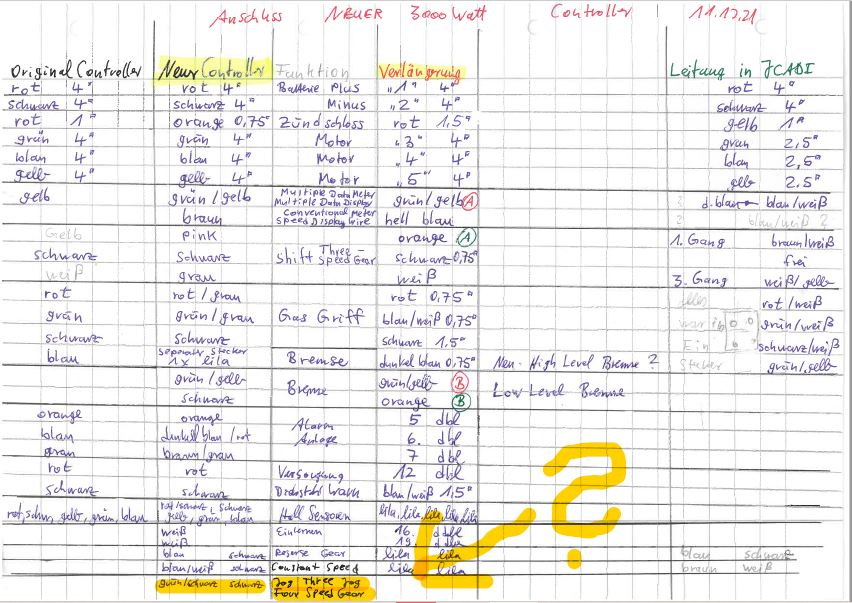 Anschluss NEUER 3000 Watt Controller 11.12.21
Original Controller Neuer Controller Funktion Verlängerung Leitung in JCADI
rot 4" rot 4" Batterie Plus "1" 4" rot 4"
schwarz 4" schwarz 4" Minus "2" 4" schwarz 4"
rot 1" orange 0,75" Zündschloss rot 1,5" gelb 1"
grün 4" grün 4" Motor "3" 4" grün 2,5"
blau 4" blau 4" Motor "4" 4" blau 2,5"
gelb 4" gelb 4" Motor "5" 4" gelb 2,5"
gelb grün/gelb Multiple Data Meter
Multiple Data Display grün/gelb A ? d.blau blau/weiß
braun Conventional Meter
Speed Display Wire hell blau ? blau/weiß ?
Gelb pink orange A 1. Gang braun/weiß
schwarz schwarz Shift Three-
Speed Gear schwarz 0,75" frei
weiß grau weiß 3. Gang weiß/gelb
rot rot/grau rot 0,75" alles rot/weiß
grün grün/grau Gas Griff blau/weiß 0,75" war in grün/weiß
schwarz schwarz schwarz 1,5" Ein 6 schwarz/weiß
blau seperater Stecker
1x lila Bremse dunkel blau 0,75" Neu - High Level Bremse ? Stecker grün/gelb
grün/gelb Bremse grün/gelb B
schwarz orange B Low Level Bremse
orange orange Alarm 5 dbl
blau dunkelblau/rot Anlage 6. dbl
grau braun/grau 7 dbl
rot rot Versorgung 12 dbl
schwarz schwarz blau/weiß 1,5"
rot, schw, gelb, grün, blau rot/schwarz, schwarz
gelb, grün, blau Hall Sensoren lila, lila, lila, lila, lila
weiß Einlernen 16. dbl
weiß 19. dbl
blau schwarz Reserse Gear lila lila blau schwarz
blau/weiß schwarz Constant Speed lila lila braun weiß
grün/schwarz schwarz Jog Three Jog
Four Speed Gear
?